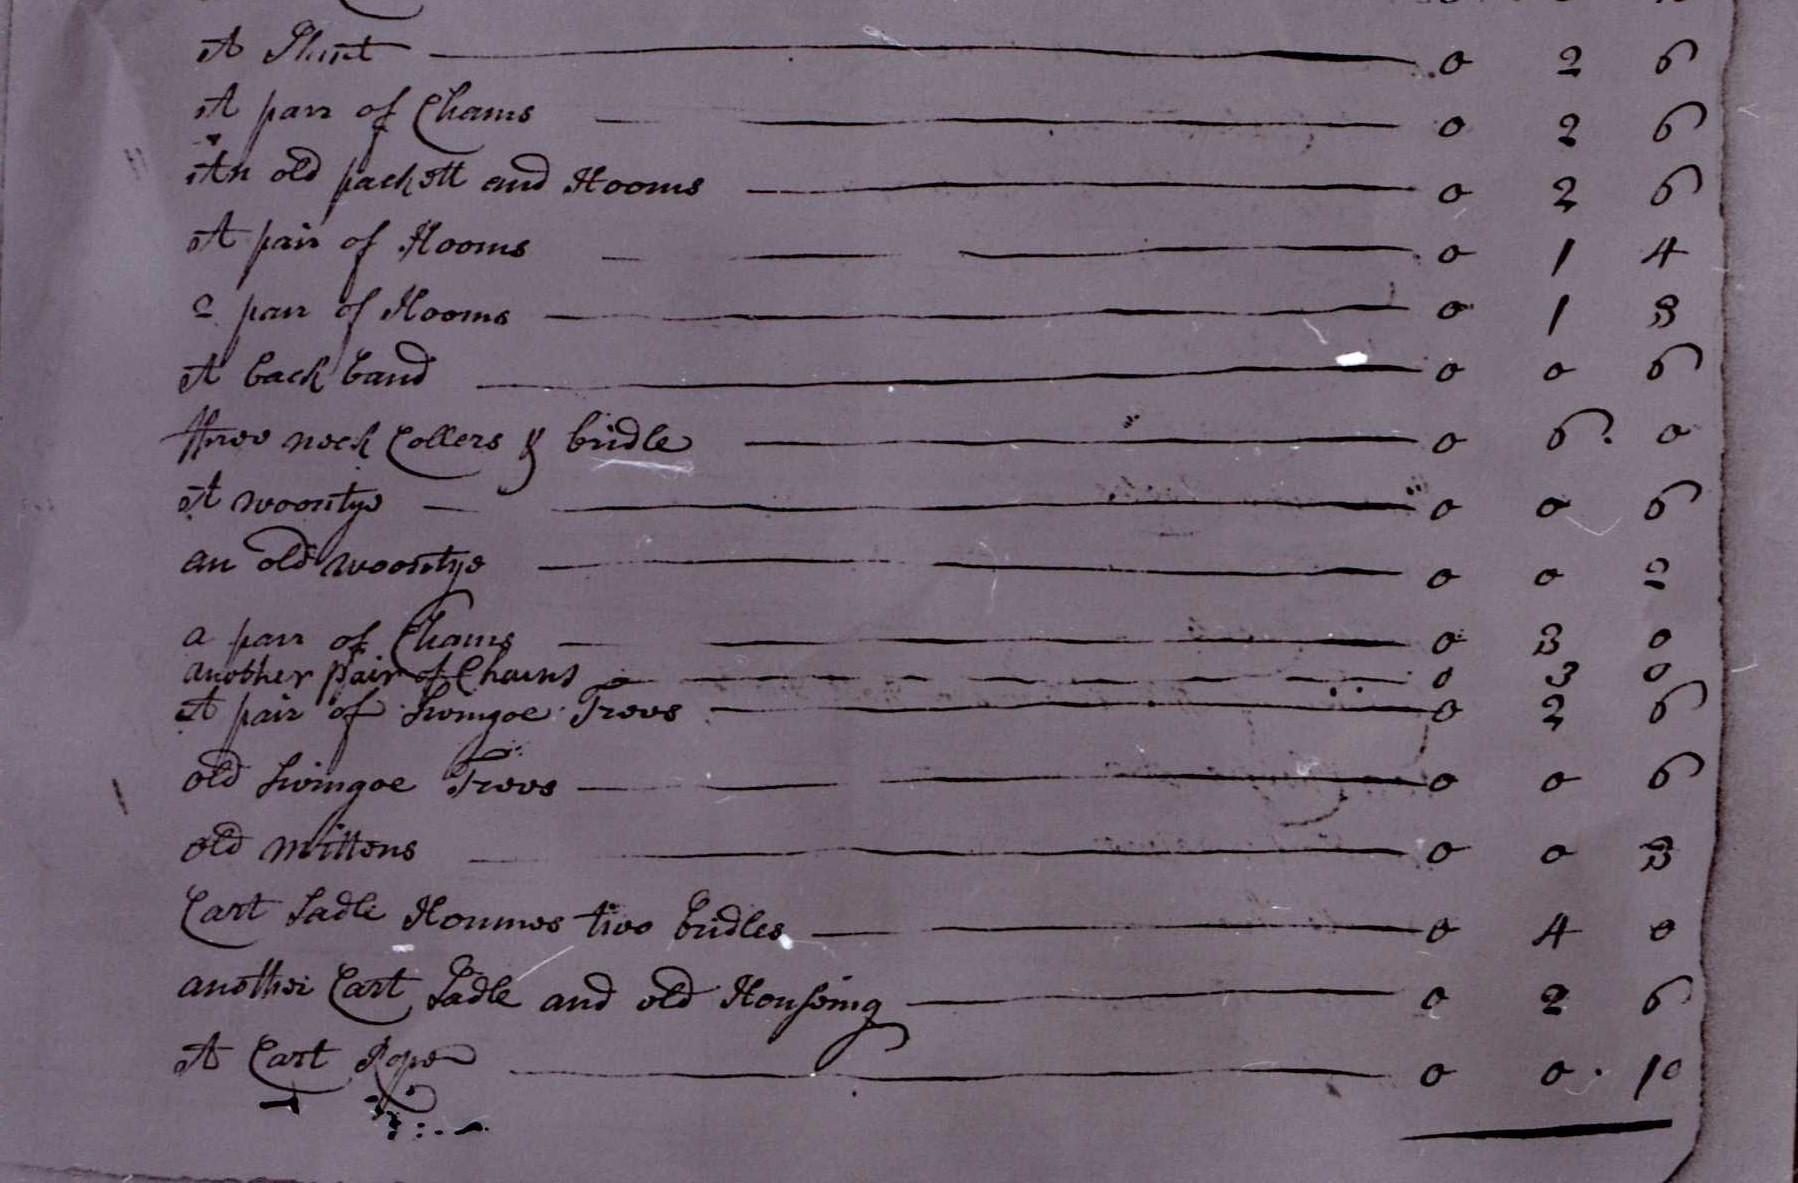 A Plut 0 2 6
A pair of Chains 0 2 6
An old packstt and Hooms 0 2 6
A pair of Hooms 0 1 4
2 pair of Hooms 0 1 8
A back band 0 0 6
three neck Collers & bridle 0 6 0
A woontye 0 0 6
an old woontye 0 0 2
a pair of Chains 0 3 0
another pair of Chains 0 3 0
A pair of Swingoe Trees 0 2 6
old Swingoe Trees 0 0 6
old mittens 0 0 3
Cart Sadle Hommes two bridles 0 4 0
another Cart Sadle and old Houseing 0 2 6
A Cart Rope 0 0 10